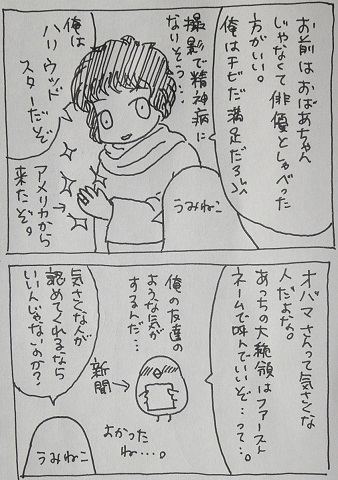 お前はおばあちゃん
じゃなくて俳優としゃべった
方がいい。
俺はチビだ満足だろ
撮影で精神病に
なりそう…
俺は
ハリウッド
スターだぞ
アメリカから
来たぞ。
うみねこ
オバマさんって気さくな
人だよな。
あっちの大統領はファースト
ネームで呼んでいいぞ…って…。
俺の友達の
ような気が
するんだ…
新聞
よかった
ね…。
気さくな人が
認めてくれるなら
いいんじゃないのか?
うみねこ